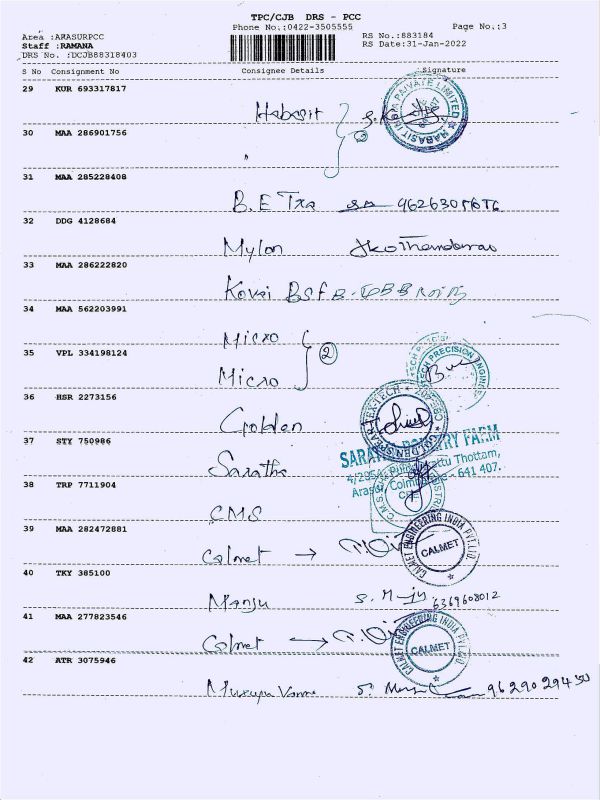 TPC/CJB DRS - PCC
Phone No.:0422-3505555
Page No.:3
Area :ARASURPCC
Staff :RAMANA
DRS No. :DCJB88318403
RS No.:883184
RS Date:31-Jan-2022
S No Consignment No Consignee Details Signature
29 KUR 693317817
Habasit
HABASIT INDIA PRIVATE LIMITED
30 MAA 286901756
"
2
31 MAA 285228408
B.E Tra
32 DDG 4128684
Mylon
33 MAA 286222820
Kovai BSF
34 MAA 562203991
Micro
2
35 VPL 334198124
Micro
TECH PRECISION
36 HSR 2273156
Golden
GOLDEN SPEAR TEX-TECH
37 STY 750986
Saratha
SARATHA POULTRY FARM
Thottam,
Arasur, Coimbatore - 641 407.
38 TRP 7711904
C.M.S
39 MAA 282472881
Calmet →
CALMET ENGINEERING INDIA PVT.LTD.
CALMET
40 TKY 385100
Manju S. Manju 6369608012
41 MAA 277823546
Calmet →
CALMET ENGINEERING INDIA PVT.LTD.
CALMET
42 ATR 3075946